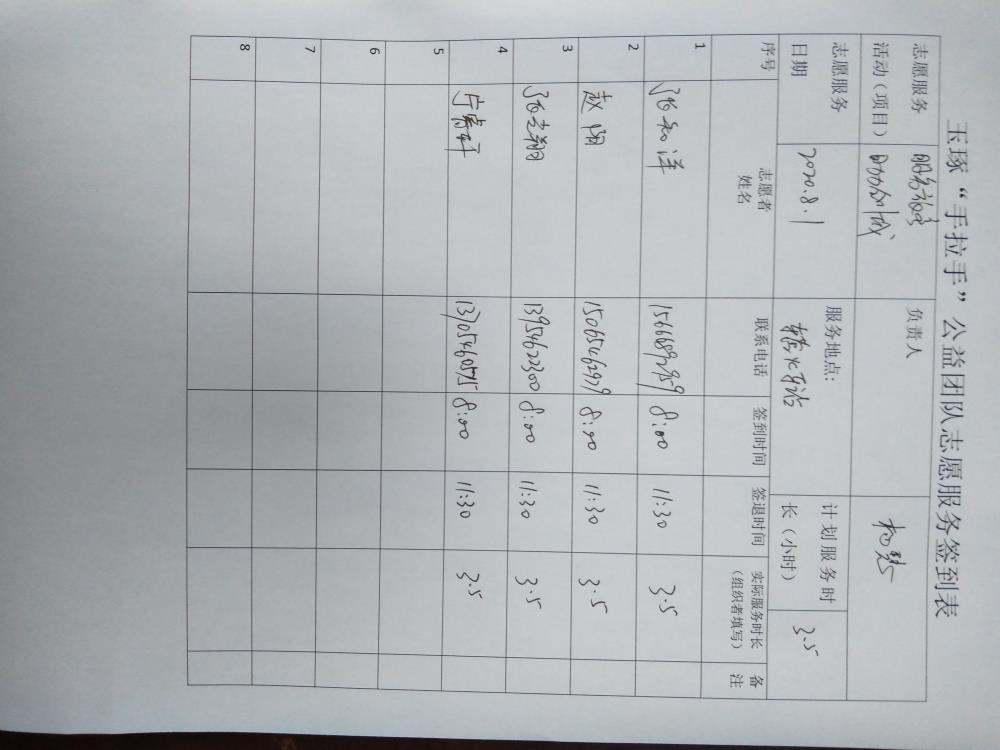 玉琢“手拉手”公益团队志愿服务签到表
志愿服务 服务
活动（项目） 助力创城
负责人
志愿服务
日期
2020.8.1
服务地点:
计划服务时
长（小时）
3.5
序号 志愿者姓名 联系电话 签到时间 签退时间 实际服务时长（组织者填写） 备注
1 张知洋 15666892959 8:00 11:30 3.5
2 赵阳 15065462929 8:00 11:30 3.5
3 13954622300 8:00 11:30 3.5
4 13705460575 8:00 11:30 3.5
5
6
7
8